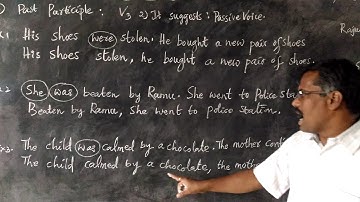 Past Participle: V3 2) It suggests: Passive Voice.
Raju
x.1 His shoes were stolen. He bought a new pair of shoes
His shoes stolen, he bought a new pair of shoes.
x.2 She was beaten by Ramu. She went to Police Sta
Beaten by Ramu, she went to Police Station.
Ex3. The child was calmed by a chocolate. The mother conti
The child calmed by a chocolate, the mothe